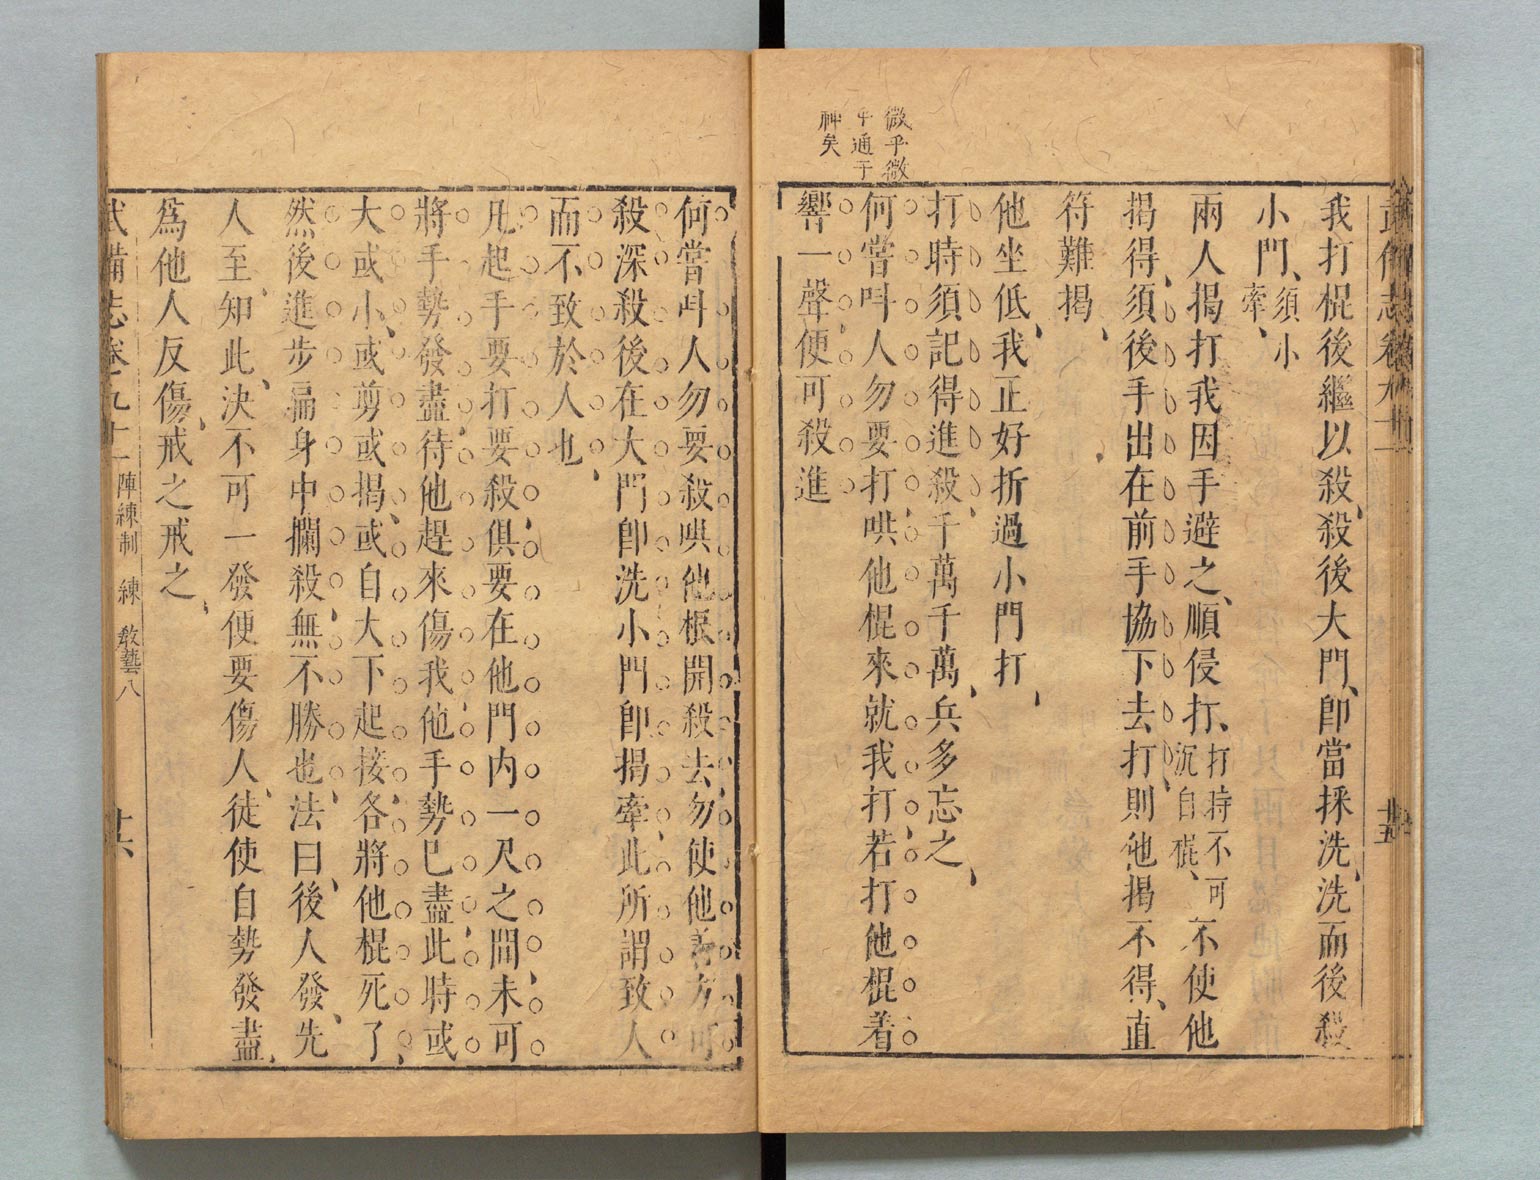 武備志卷九十一
廿五
我打棍後繼以殺、殺後大門、即當採洗、洗而後殺
小門、須小牽、
兩人揭打我因手避之、順侵打、打時不可沉自棍、不使他
揭得、須後手出在前手協下去打、則他揭不得、直
符難揭、
他坐低、我正好折過小門打、
打時須記得進殺、千萬千萬、兵多忘之、
何嘗呌人勿要打、哄他棍來就我打、若打他棍着
響一聲、便可殺進
微乎微
乎通于
神矣
何嘗呌人勿要殺、哄他棍開殺去、勿使他
殺深、殺後在大門即洗、小門即揭牽、此所謂致人
而不致於人也、
凡起手要打要殺、俱要在他門內一尺之間、未可
將手勢發盡、待他趕來傷我、他手勢已盡、此時或
大或小、或剪或揭、或自大下起接、各將他棍死了、
然後進步扁身中攔殺、無不勝也、法曰、後人發、先
人至、知此、決不可一發便要傷人、徒使自勢發盡、
爲他人反傷、戒之戒之、
武備志卷九十一 陣練制 練 敎藝八
廿六